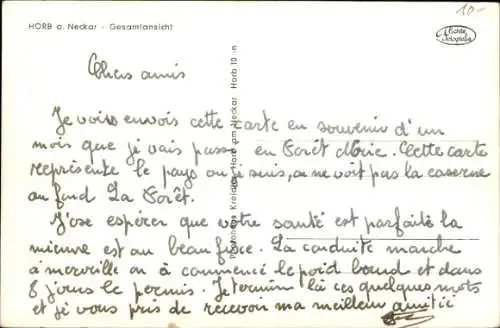 HORB a. Neckar - Gesamtansicht
10.-
Chers amis
Je vous envois cette carte en souvenir d'un
mois que je vais passe en Forêt Noire. Cette carte
représente le pays ou je suis, on ne voit pas la caserne
au fond La Forêt.
J'ose espérer que votre santé est parfaite la
mienne est au beau fixe. La conduite marche
à merveille on à commencé le poid lourd et dans
8 jours le permis. Je termine là ces quelques mots
et je vous pris de recevoir ma meilleur amitié
Horb am Neckar Horb 10